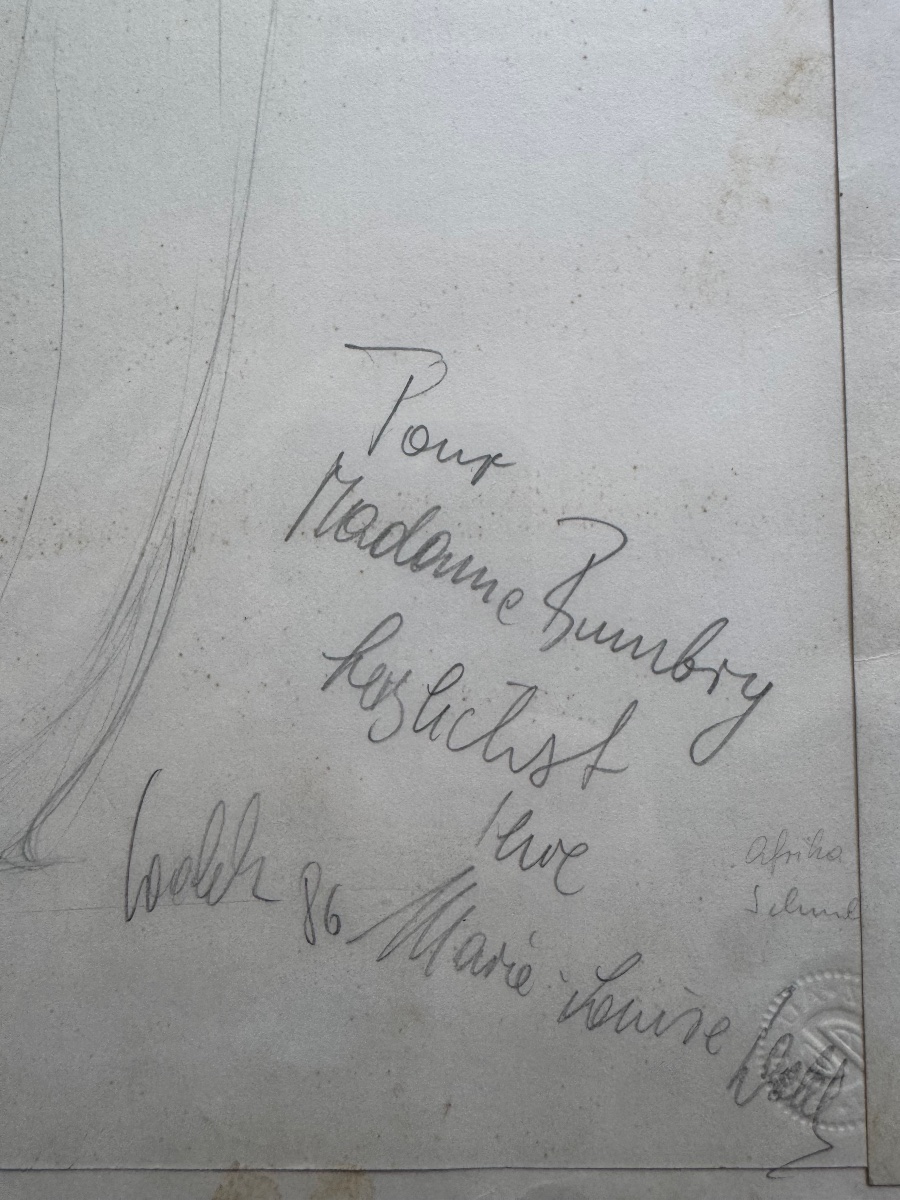 Pour
Madame Bumbry
herzlichst
Ihre
86 Marie-Louise
Afrika